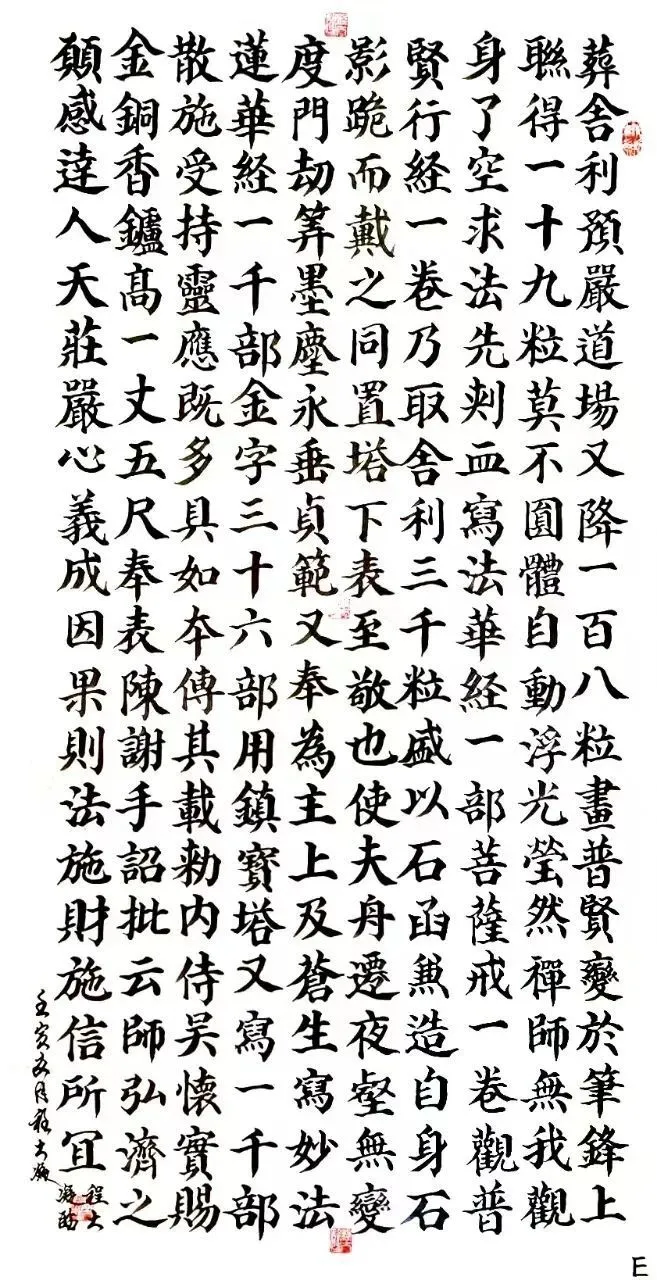 葬舍利預嚴道場又降一百八粒畫普賢變於筆鋒上
聮得一十九粒莫不圓體自動浮光瑩然禪師無我觀
身了空求法先刾血寫法華経一部菩薩戒一卷觀普
賢行経一卷乃取舍利三千粒盛以石函兼造自身石
影跪而戴之同置塔下表至敬也使夫舟遷夜壑無變
度門劫筭墨塵永垂貞範又奉為主上及蒼生寫妙法
蓮華経一千部金字三十六部用鎮寶塔又寫一千部
散施受持靈應既多具如夲傳其載勑内侍吴懷實賜
金銅香鑪髙一丈五尺奉表陳謝手詔批云師弘濟之
願感達人天莊嚴心義成因果則法施財施信所冝
壬寅五月程大凝
程大
凝
E